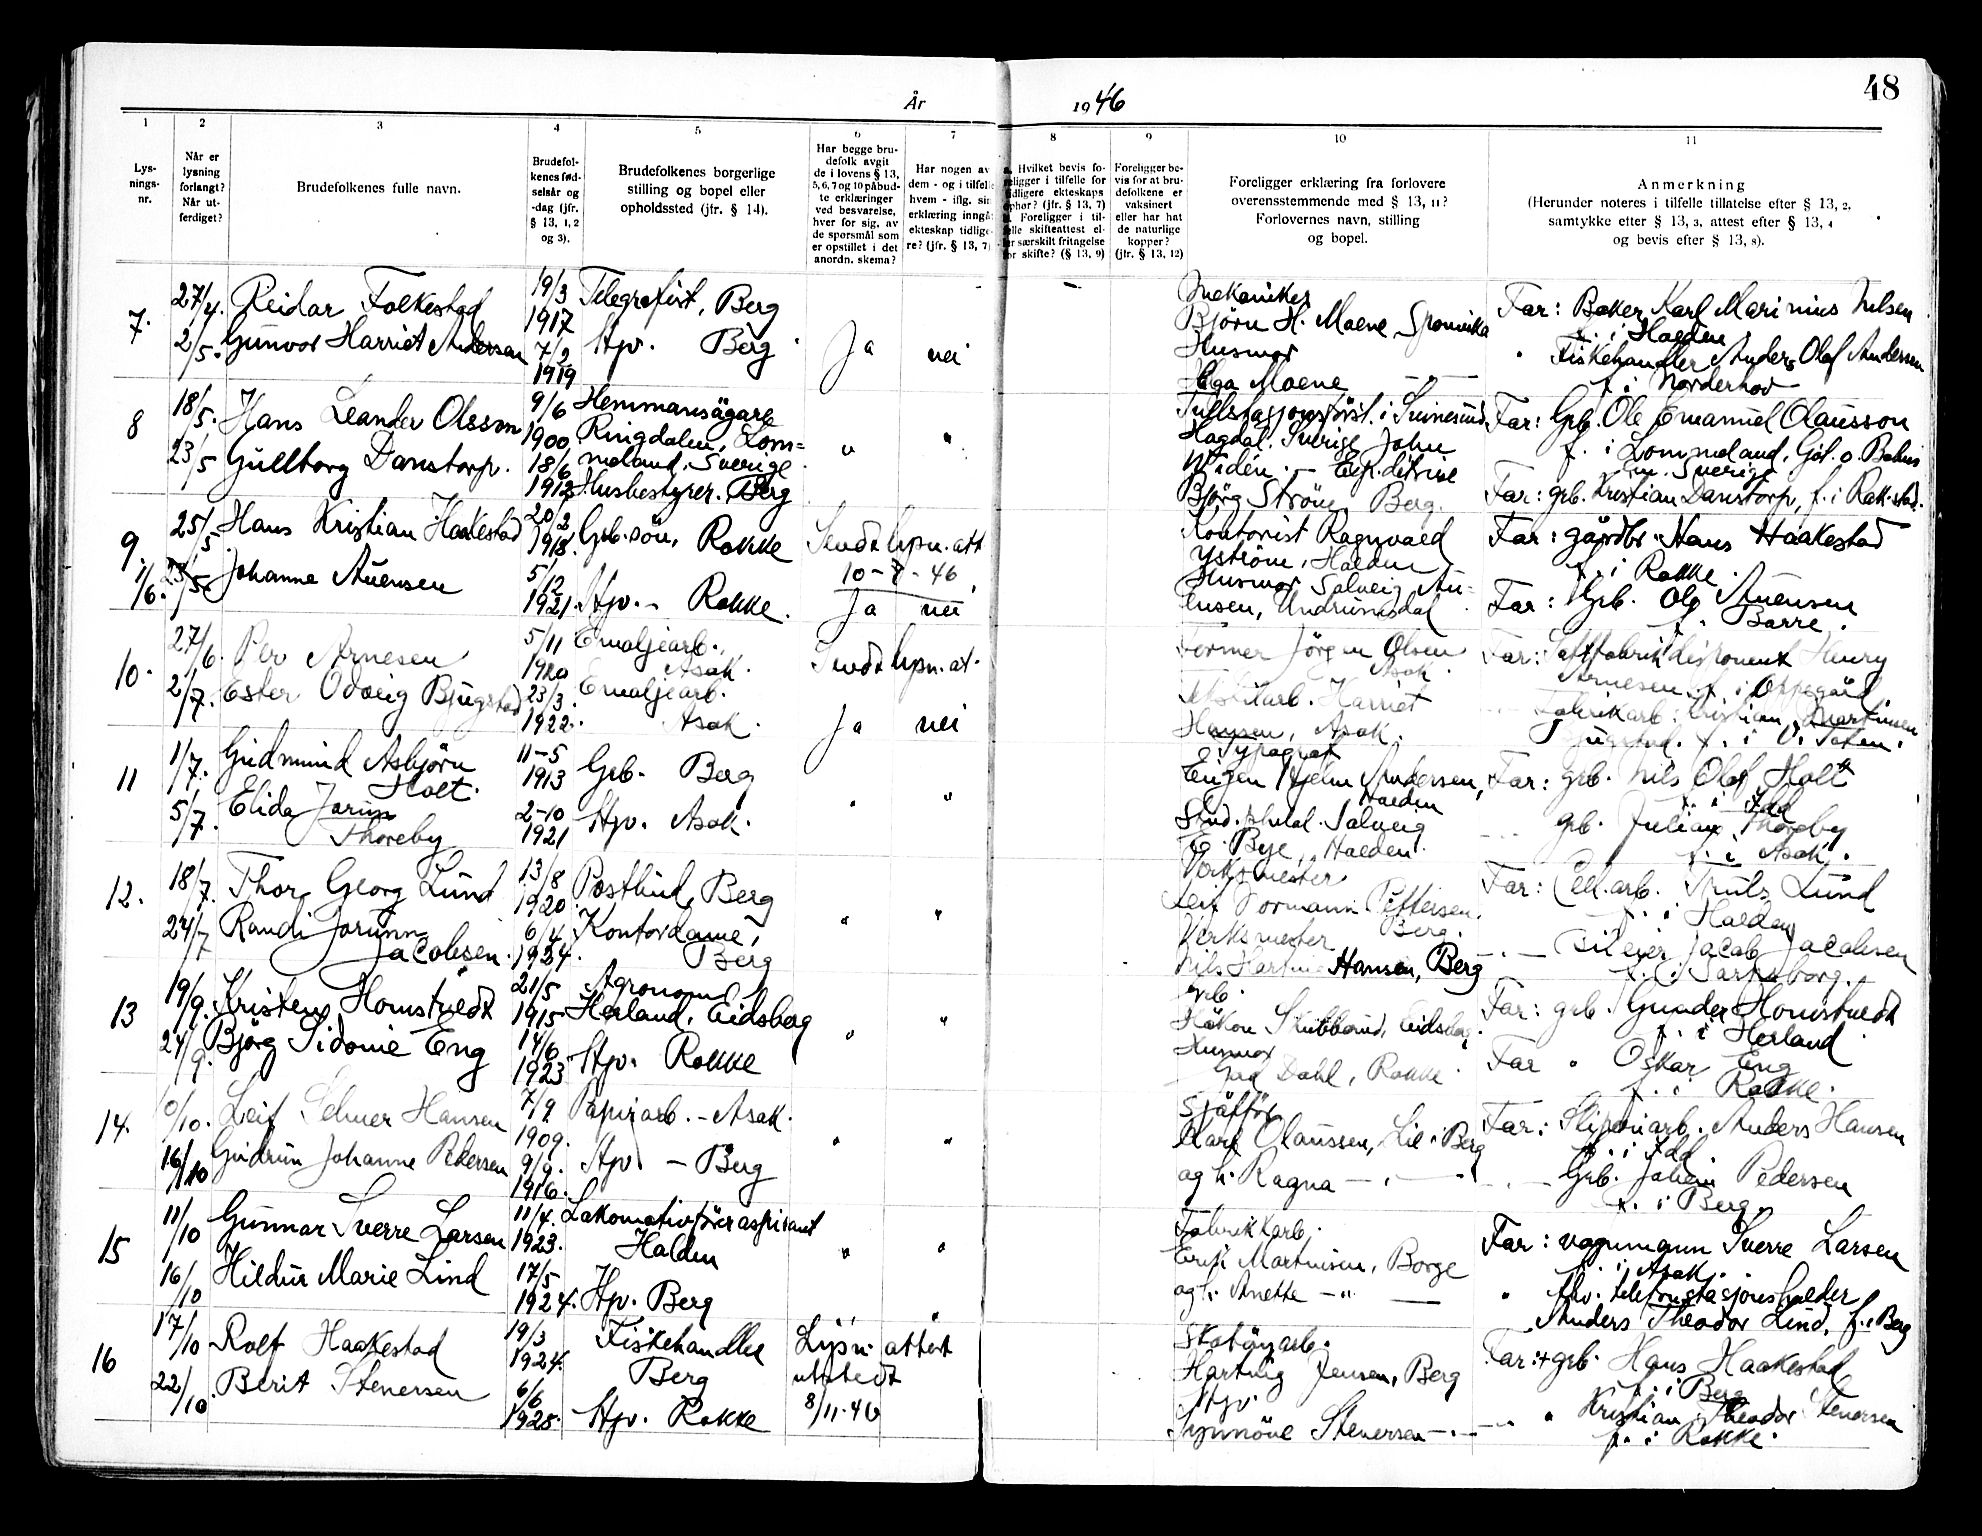 48
År 1946
1 2 3 4 5 6 7 8 9 10 11
Lys-
nings-
nr.
Når er
lysning
forlangt?
Når ut-
ferdiget?
Brudefolkenes fulle navn.
Brudefol-
kenes fød-
selsår og
-dag (jfr.
§ 13, 1, 2
og 3).
Brudefolkenes borgerlige
stilling og bopel eller
opholdssted (jfr. § 14).
Har begge bru-
defolk avgit
de i lovens § 13,
5, 6, 7 og 10 påbud-
te erklæringer
ved besvarelse,
hver for sig, av
de spørsmål som
er opstillet i det
anordn. skema?
Har nogen av
dem - og i tilfelle
hvem - iflg. sin
erklæring inngåt
ekteskap tidlige-
re? (jfr. § 13, 7)
Hvilket bevis fo-
religger i tilfelle for
tidligere ekteskaps
ophør? (§ 13, 7)
Foreligger i til-
felle skifteattest el-
ler særskilt fritagelse
for skifte? (§ 13, 9)
Foreligger be-
vis for at bru-
defolkene er
vaksinert
eller har hat
de naturlige
kopper?
(jfr. § 13, 12)
Foreligger erklæring fra forlovere
overensstemmende med § 13, 11?
Forlovernes navn, stilling
og bopel.
Anmerkning
(Herunder noteres i tilfelle tillatelse efter § 13, 2,
samtykke efter § 13, 3, attest efter § 13, 4
og bevis efter § 13, 8).
7.
27/4.
2/5.
Reidar Folkestad
Gunvor Harriet Andersen
19/3
1917
7/2
1919
Telegrafist, Berg
Hpv. Berg
Ja nei
Mekaniker
Björn H. Moene, Sponvika
Husmor
Helga Moene
Far: Baker Karl Marinius Nilsen
f. i Halden
" Fiskehandler Anders Olaf Andersen
f. i Norderhov
8
18/5.
23/5
Hans Leander Olsson
Gullborg Danstorp.
9/6
1900
18/6
1912
Hemmansägare
Ringdalen, Lom=
meland, Sverige
Husbestyrer. Berg
" "
i Svinesund
Hogdal. Sverige John
Widén. -
Björg Ström, Berg.
Far: Grb. Ole Emanuel Olausson
f. i Lommeland, Göt. o. Bohus
Sverige
Far: grb. Kristian Danstorp, f. i Rakkestad.
9.
25/5
1/6.
Hans Kristian Haakestad
Johanne Auensen
20/2
1918.
5/12
1921.
Grb. sön, Rokke
Hpv. - Rokke.
Sendt lysn. att
10-7-46
Ja nei
Kontorist Ragnvald
Yström, Halden
Husmor Solveig Au-
ensen,
Far: gårdbr. Hans Haakestad
f. i Rokke.
Far: Grb. Ole Auensen
f. Barre.
10.
27/6.
2/7.
Per Arnesen
Ester Odveig Bjugstad
5/11
1920
23/3.
1922.
Emaljearb.
Asak.
Emaljearb.
Asak.
Sendt lysn. at.
Ja nei
Former Jörgen Olsen
Asak.
Tekstilarb. Harriet
Hansen, Asak.
Far: Saftfabrikkdisponent Henry
Arnesen f. i Oppegård
Fabrikkarb. Kristian Martinsen
Bjugstad. f. i V. Toten.
11
1/7.
5/7.
Gudmund Asbjörn
Holt.
Elida Jorun
Thoreby
11-5
1913
2-10
1921
Grb. Berg
Hpv. Asak.
" "
Typograf
Eugen Hjelm Andersen,
Halden
Solveig
Bye, Halden.
Far: grb. Nils Olaf Holt
f. i Idd
grb. Julian Thoreby
f. i Asak.
12.
18/7.
24/7
Thor Georg Lund
Randi Jorunn
Jacobsen.
13/8
1920.
6/4
1924.
Postbud, Berg
Kontordame,
Berg
" "
Verksmester
Leif Normann Pettersen.
Berg.
Verksmester
Nils Hansen, Berg
Far: Cell.arb. Truls Lund
f. i Halden
Bileier Jacob Jacobsen
f. i Sarpsborg.
13
19/9.
24/9.
Kristen Homstvedt
Björg Sidonie Eng
21/5
1915
14/6
1923
Agronom
Herland, Eidsberg
Hpv. Rokke
" "
Grb.
Håkon Stubberud, Eidsberg.
Husmor
Dahl, Rokke.
Far: grb. Gunder Homstvedt
f. i Herland
Far " Oskar Eng
f. i Rokke.
14.
10/10.
16/10
Leif Selmer Hansen
Gudrun Johanne Pedersen
7/9
1909.
9/9.
1916.
Papirarb. - Asak.
Hpv - Berg
" "
Sjåför
Karl Olaussen, Lie i Berg
og h. Ragna
Far: Sliperiarb. Anders Hansen
f. i Idd
Grb. Johan Pedersen
f. i Berg.
15
11/10
16/10
Gunnar Sverre Larsen
Hildur Marie Lind
11/4.
1923.
17/5
1924.
Lokomotivföreraspirant
Halden
Hpv. Berg
" "
Fabrikkarb.
Erik Martinsen, Borge
og h. Anette - " -
Far: vognmann Sverre Larsen
f. i Asak.
" fhv. telefonstasjonsholder
Anders Theodor Lind, f. i Berg
16
17/10
22/10.
Rolf Haakestad
Berit Stenersen
19/3
1924.
6/6
1925.
Fiskehandler
Berg
Hpv. Rokke
Lysn. attest
utstedt
8/11.46
Skotöyarb.
Hartvig Jensen, Berg
Hpv.
Synnöve Stenersen
Far: + grb. Hans Haakestad
f. i Berg
" Kristian Theodor Stenersen
f. i Rokke.